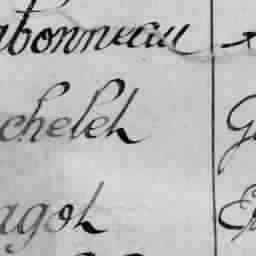 abonneau
chelet
agot